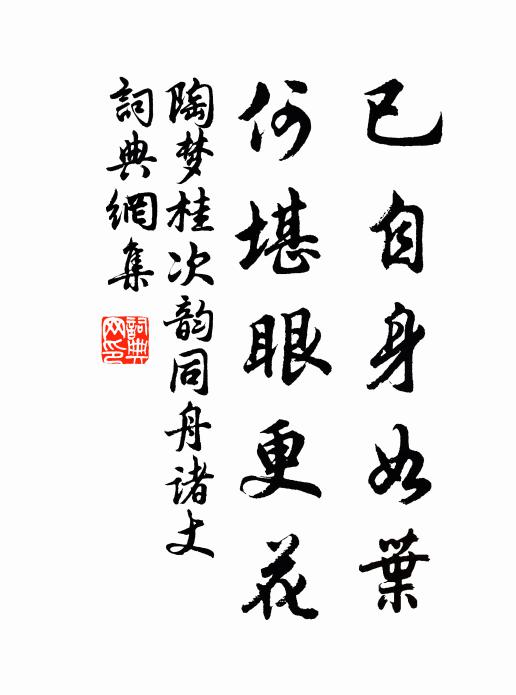 已自身如葉
何堪眼更花
陶梦桂次韵同舟諸丈
詞典網集
詞典网印